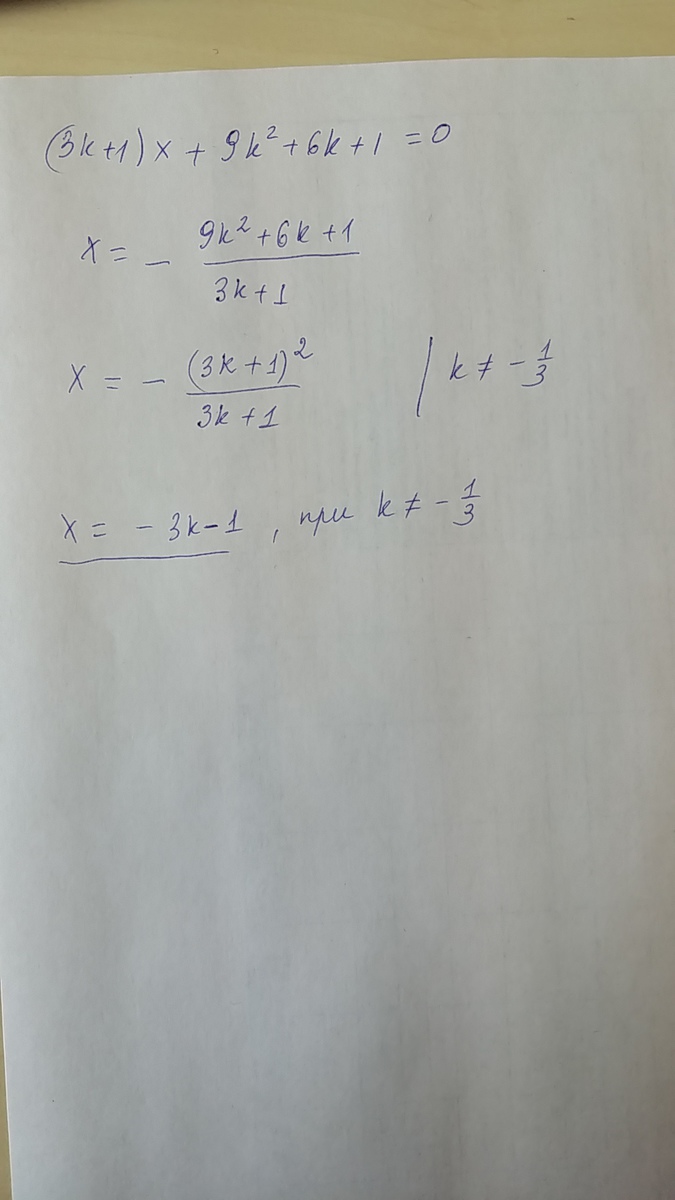 (3k+1)x + 9k²+6k+1 = 0
x = - (9k²+6k+1)/(3k+1)
x = - (3k+1)²/(3k+1) | k ≠ - 1/3
x = - 3k-1 , при k ≠ - 1/3